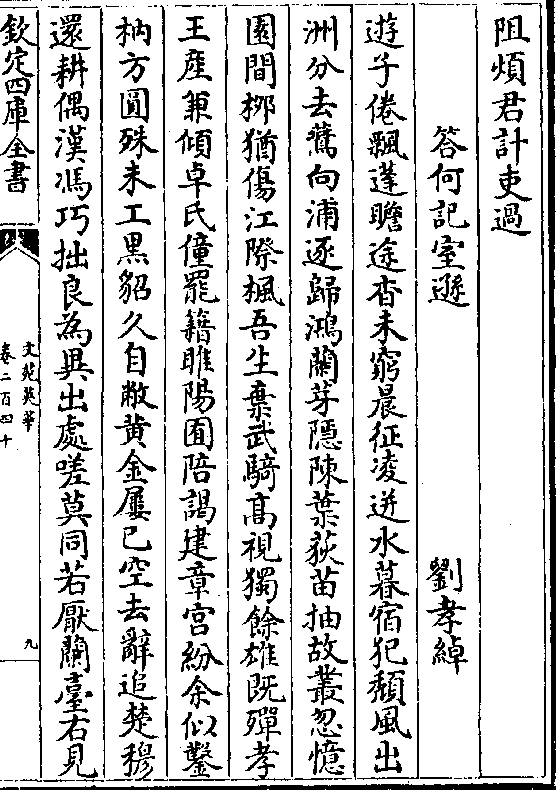 阻煩君計吏過
答何記室遜
劉孝綽
遊子倦飄蓬瞻途杳未窮晨征凌迸水暮宿犯頹風出
洲分去鷺向浦逐歸鴻蘭芽隱陳葉荻苗抽故叢忽憶
園間栁猶傷江際楓吾生棄武騎髙視獨餘雄既殫孝
王産兼傾卓氏僮罷籍睢陽囿陪謁建章宮紛余似鑿
枘方圓殊未工黒貂久自敝黄金屢已空去辭追楚穆
還耕偶漢馮巧拙良為異出處嗟莫同若厭蘭臺右見
欽定四庫全書
文苑英華
卷二百四十
九